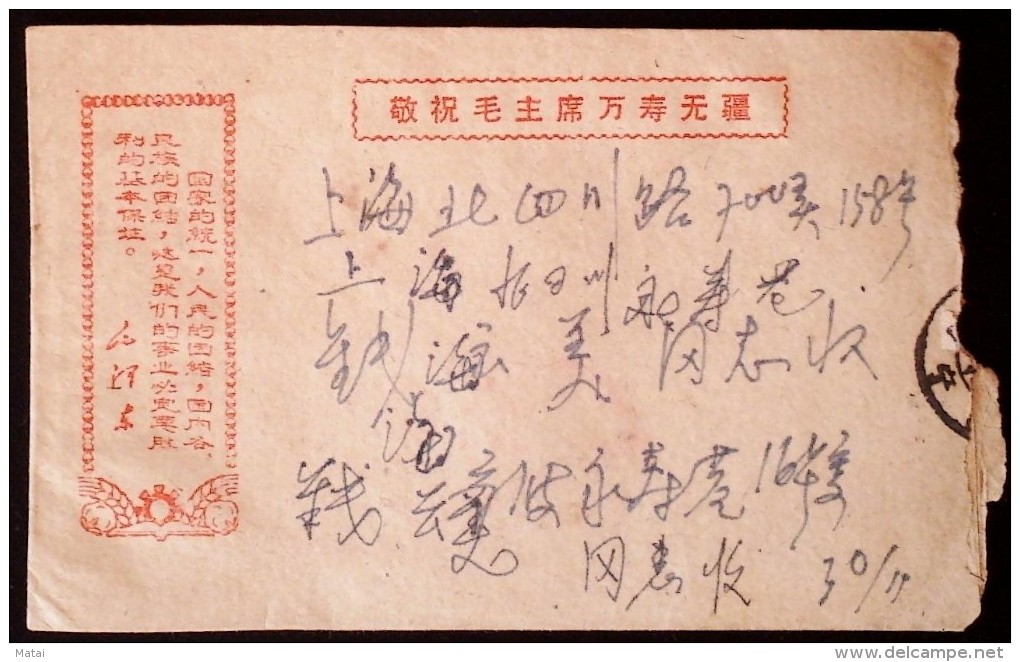 敬祝毛主席万寿无疆
国家的统一，人民的团结，国内各
民族的团结，这是我们的事业必定要胜
利的基本保证。
毛泽东
上海北四川路700弄158号
上海 永寿巷
钱海 美 同志收
钱 美 永寿巷 16
同志收 30/11
Matai
www.delcampe.net